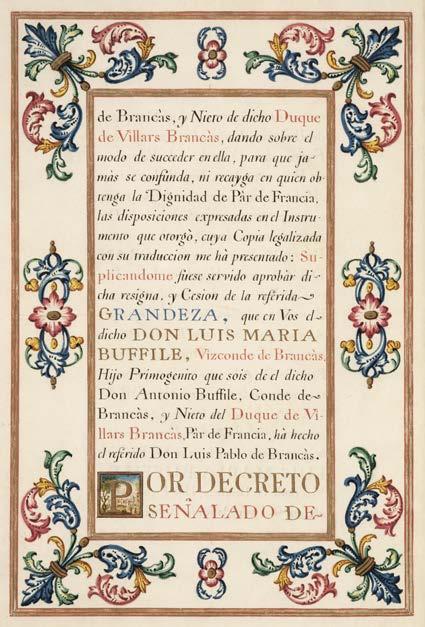 de Brancàs, y Nieto de dicho Duque
de Villars Brancàs, dando sobre el
modo de succeder en ella, para que ja-
màs se confunda, ni recayga en quien ob-
tenga la Dignidad de Pàr de Francia,
las disposiciones expresadas en el Instru-
mento que otorgò, cuya Copia legalizada
con su traduccion me hà presentado: Su-
plicandome fuese servido aprobàr di-
cha resigna, y Cesion de la referida~
GRANDEZA, que en Vos el-
dicho DON LUIS MARIA
BUFFILE, Vizconde de Brancàs,
Hijo Primogenito que sois de el dicho
Don Antonio Buffile, Conde de~
Brancàs, y Nieto del Duque de Vi-
llars Brancàs, Pàr de Francia, hà hecho
el referido Don Luis Pablo de Brancàs.
POR DECRETO
SEÑALADO DE~